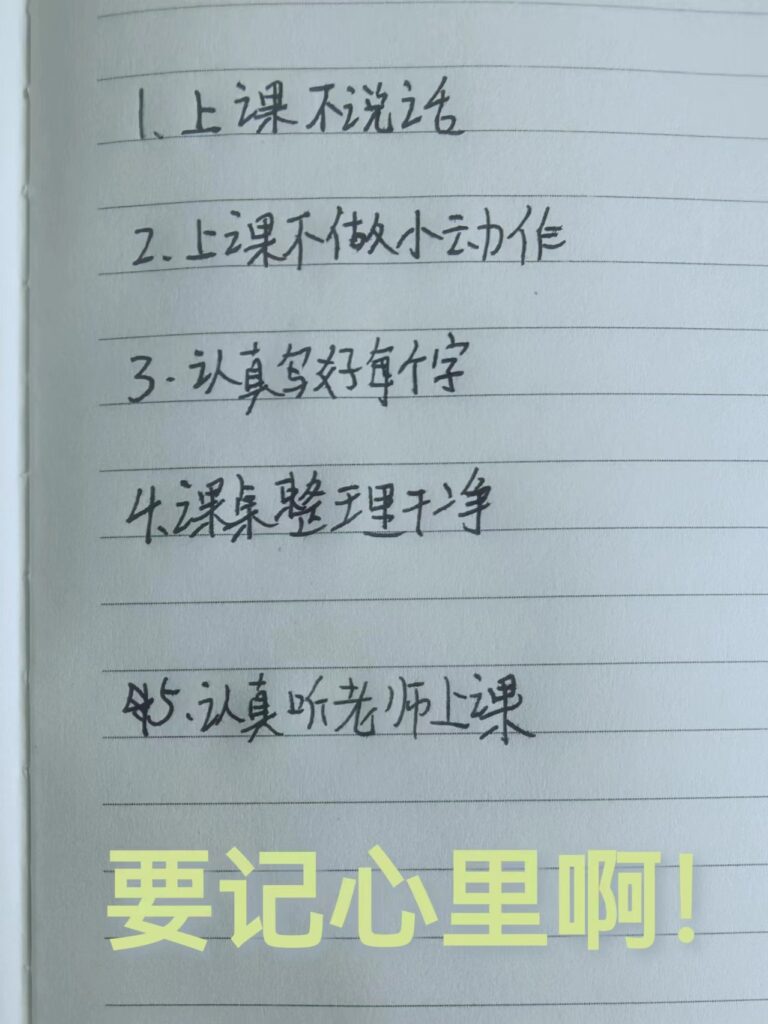 1、上课不说话
2、上课不做小动作
3.认真写好每个字
4、课桌整理干净
5、认真听老师上课
要记心里啊!